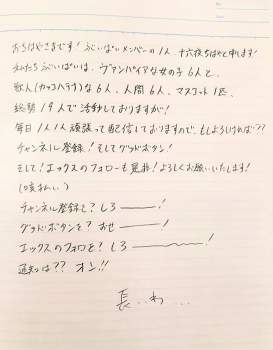 おちはやさまです！ぶいぱいメンバーの1人、十六夜ちはやと申します！
私たちぶいぱいは、ヴァンパイアな女の子6人と、
獣人(カッコハテナ)な6人、人間6人、マスコット1匹、
総勢19人で活動しておりますが！
毎日1人1人頑張って配信しておりますので、もしよろしければ??
チャンネル登録！そしてグッドボタン！
そして！エックスのフォローも是非！よろしくお願いいたします！
(咳払い)
チャンネル登録を？しろ―――！
グッドボタンを？おせ―――！
エックスのフォロを？しろ―――！
通知は?? オン!!
長いわ...